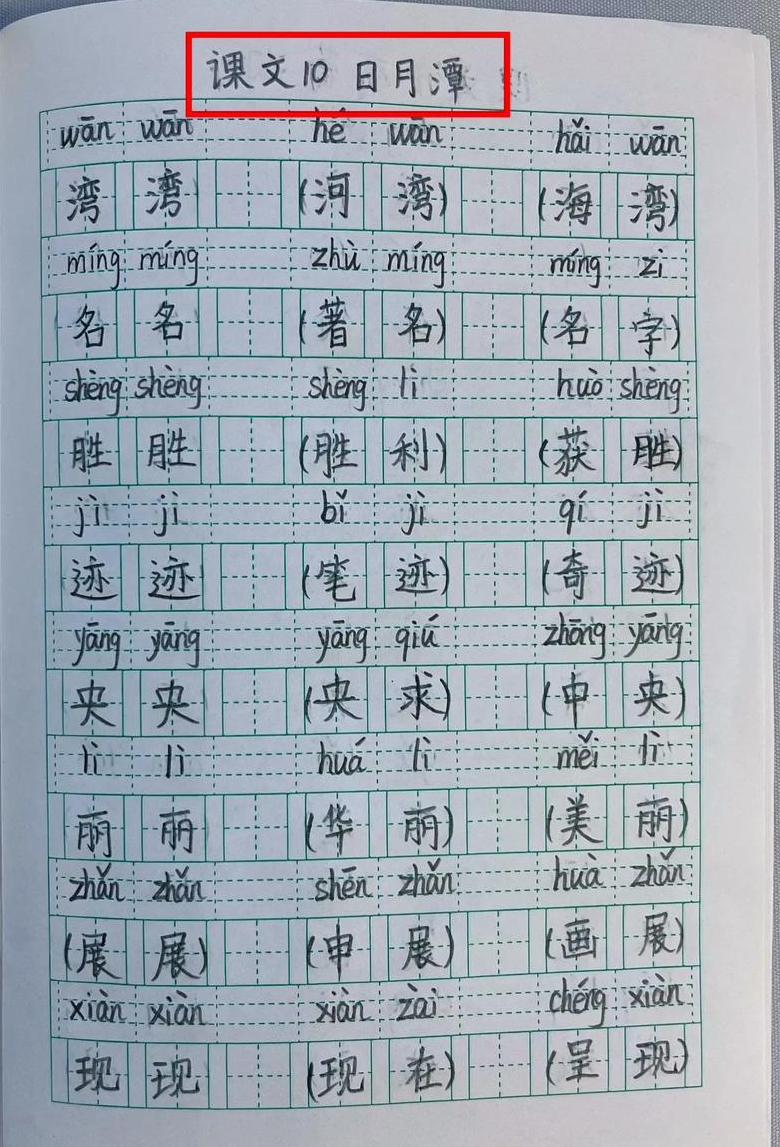 课文10 日月潭
wān wān hé wān hǎi wān
湾 湾 (河 湾) (海 湾)
míng míng zhù míng míng zi
名 名 (著 名) (名 字)
shèng shèng shèng lì huò shèng
胜 胜 (胜 利) (获 胜)
jì jì bǐ jì qí jì
迹 迹 (笔 迹) (奇 迹)
yāng yāng yāng qiú zhōng yāng
央 央 (央 求) (中 央)
lì lì huá lì měi lì
丽 丽 (华 丽) (美 丽)
zhǎn zhǎn shēn zhǎn huà zhǎn
(展 展) (申 展) (画 展)
xiàn xiàn xiàn zài chéng xiàn
现 现 (现 在) (呈 现)